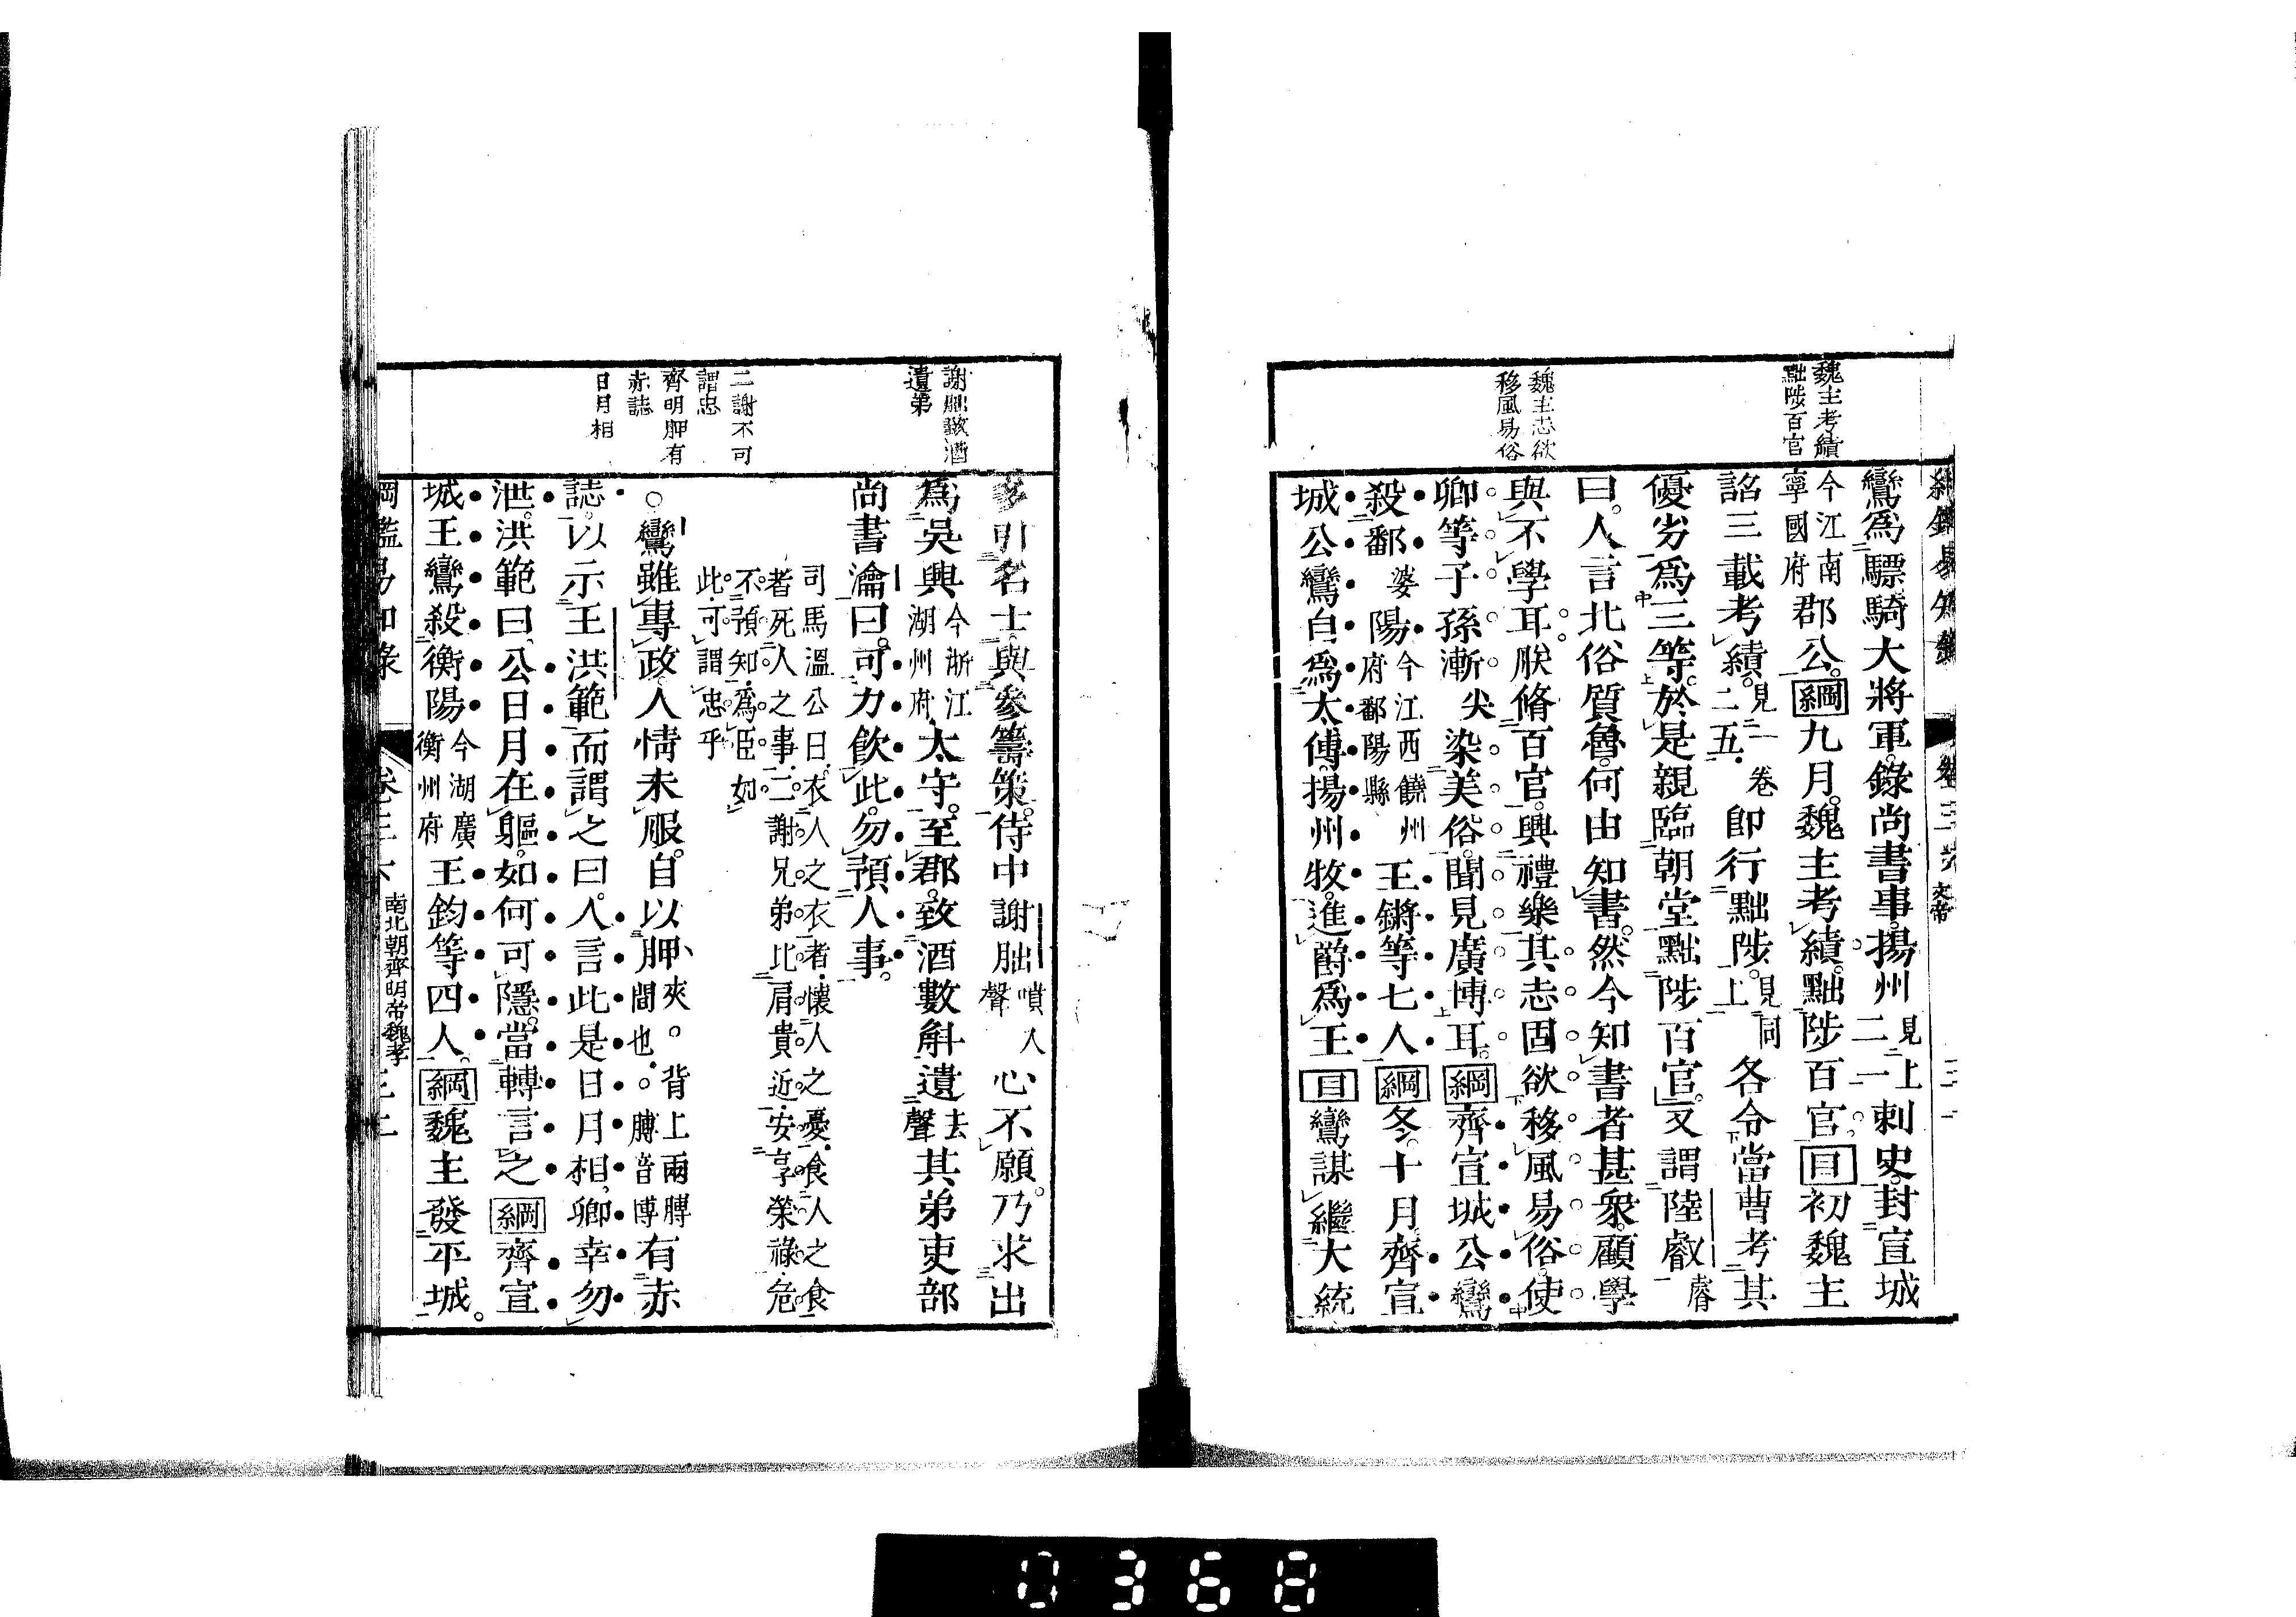 魏主考績
黜陟百官
魏主志欲
移風易俗
鸞爲驃騎大將軍錄尚書事揚州見上二一刺史封宣城
今江南寧國府郡公綱九月魏主考績黜陟百官目初魏主
詔三載考績見二卷二五即行黜陟見上同各令當曹考其
優劣爲三等於是親臨朝堂黜陟百官又謂陸叡睿
曰人言北俗質魯何由知書然今知書者甚衆顧學
與不學耳朕脩百官興禮樂其志固欲移風易俗使
卿等子孫漸尖染美俗聞見廣博耳綱齊宣城公鸞
殺鄱婆陽今江西饒州府鄱陽縣王鏘等七人綱冬十月齊宣
城公鸞自爲太傅揚州牧進爵爲王目鸞謀繼大統
謝朏致酒
遺弟
二謝不可
謂忠
齊明胛有
赤誌
日月相
多引名士與參籌策侍中謝朏噴入聲心不願乃求出
爲吳興今浙江湖州府太守至郡致酒數斛遺去聲其弟吏部
尚書瀹曰可力飲此勿預人事
司馬溫公曰衣人之衣者懷人之憂食人之食
者死人之事二謝兄弟比肩貴近安享榮祿危
不預知爲臣如
此可謂忠乎
○鸞雖專政人情未服自以胛夾。背上兩膊間也。膊音博有赤
誌以示王洪範而謂之曰人言此是日月相卿幸勿
泄洪範曰公日月在軀如何可隱當轉言之綱齊宣
城王鸞殺衡陽今湖廣衡州府王鈞等四人綱魏主發平城
綱鑑易知錄 卷三六 南北朝齊明帝魏孝
0368